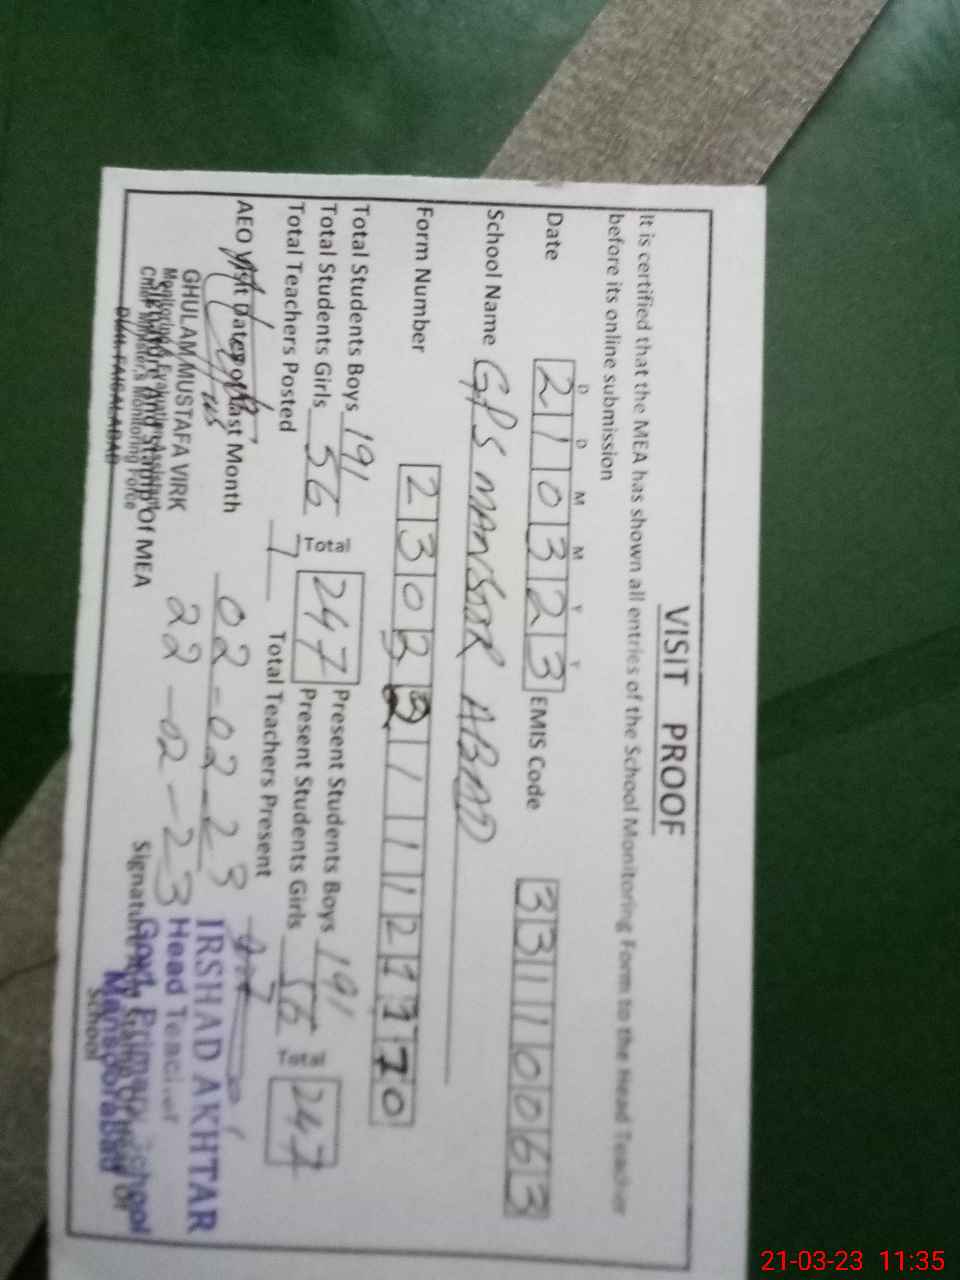 VISIT PROOF
It is certified that the MEA has shown all entries of the School Monitoring Form to the Head Teacher
before its online submission
D D M M Y Y
Date 210323 EMIS Code 33110063
School Name GPS MANSOR ABAD
Form Number
Total Students Boys 191 Total 247 Present Students Boys 191 Total 247
Total Students Girls 56 Present Students Girls 56
Total Teachers Posted 7 Total Teachers Present 7
AEO Visit Dates of last Month 02-02-23
22-02-23
GHULAM MUSTAFA VIRK
Monitoring & Evaluation Assistant
Chief Minister's Monitoring Force
Distt. FAISALABAD
Signature And Stamp Of MEA
IRSHAD AKHTAR
Head Teacher
Govt. Primary School
Mansorabad
School
21-03-23 11:35